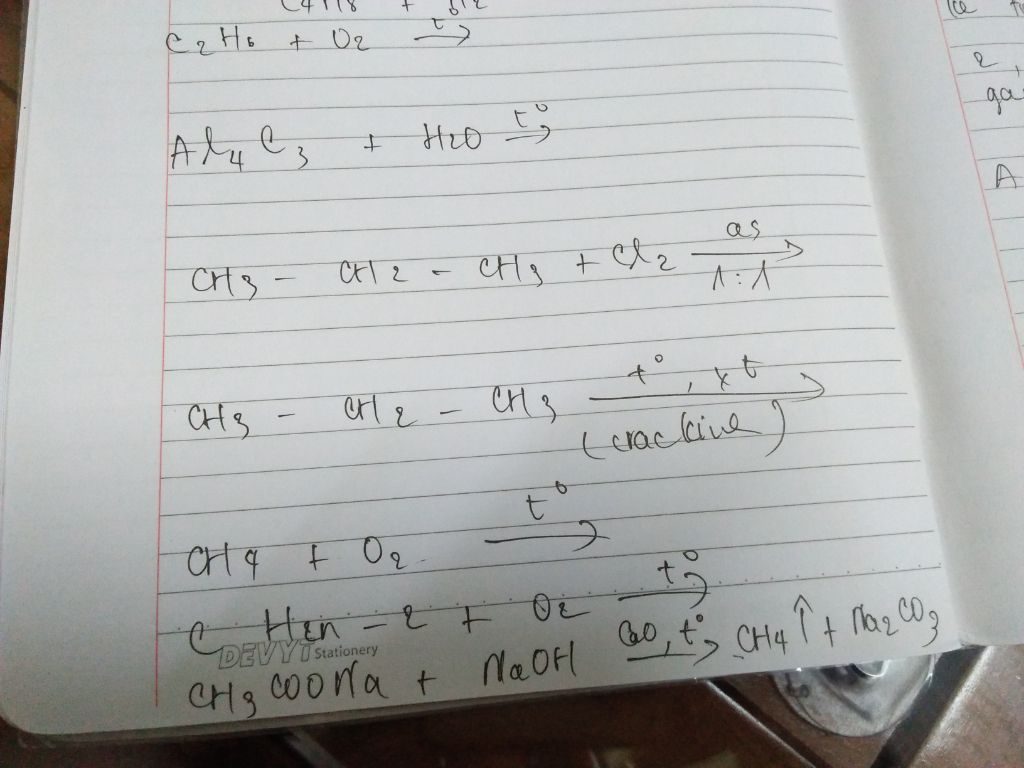 C4H8 + Br2
C2H6 + O2 →t°
Al4C3 + H2O →t°
CH3 - CH2 - CH3 + Cl2 →as 1:1
CH3 - CH2 - CH3 →t°, xt (crackine)
CH4 + O2 →t°
C H2n - 2 + O2 →t°
DEVYT Stationery
CH3COONa + NaOH →CaO, t° CH4↑ + Na2CO3
2,
ga
A